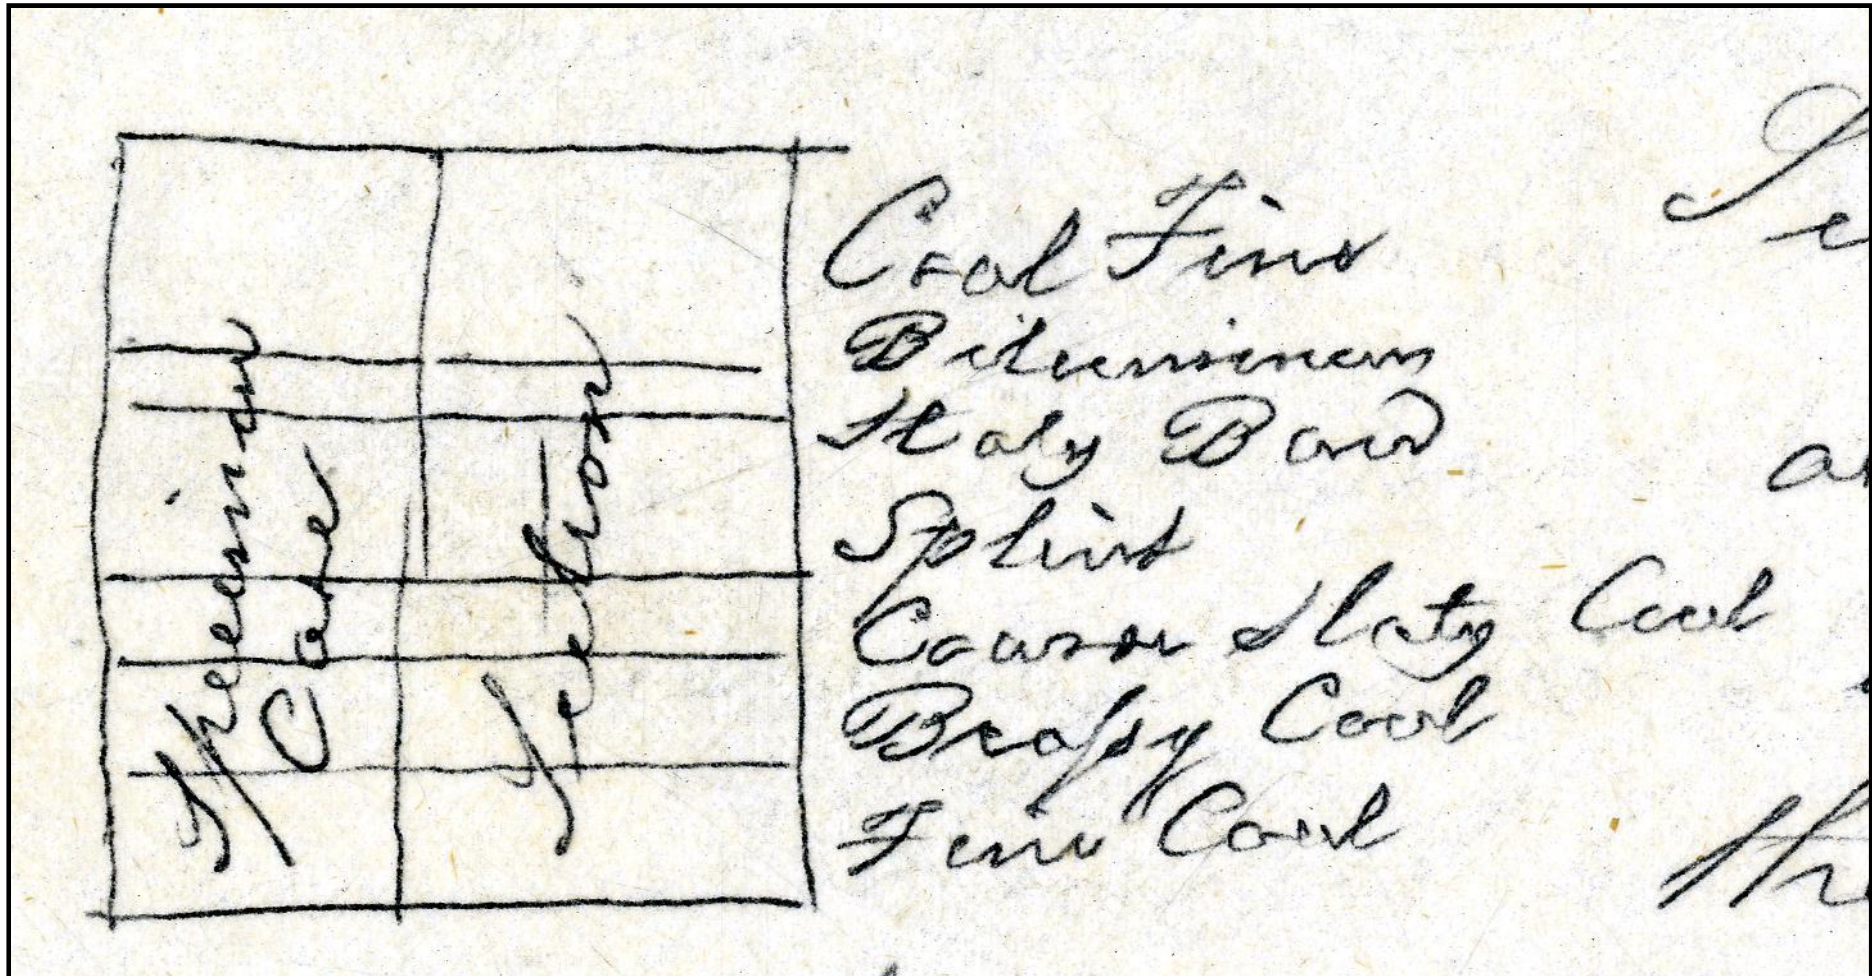 Specimen
Case
Section
Coal Fine
Bituminous
Slaty Band
Splint
Coarse Slaty Coal
Brassy Coal
Fine Coal